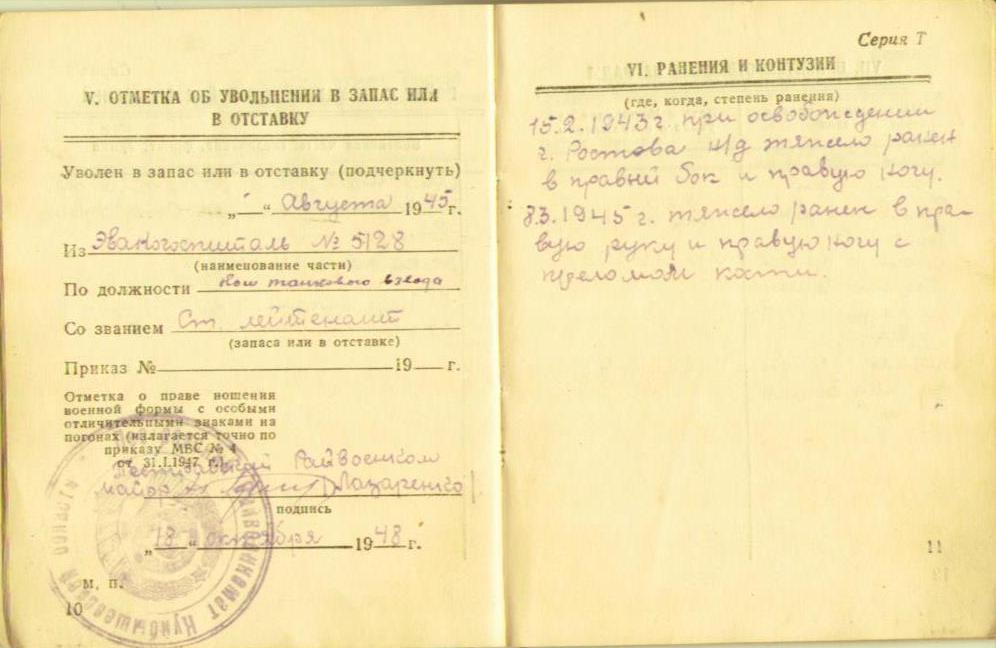 V. ОТМЕТКА ОБ УВОЛЬНЕНИЯ В ЗАПАС ИЛИ
В ОТСТАВКУ
Уволен в запас или в отставку (подчеркнуть)
„—“ Августа 1945 г.
Из Эвакогоспиталь № 5128
(наименование части)
По должности Ком танкового взвода
Со званием Ст. лейтенант
(запаса или в отставке)
Приказ № 19 г.
Отметка о праве ношения
военной формы с особыми
отличительными знаками на
погонах (излагается точно по
приказу МВС № 4
от 31.I.1947 г.)
Райвоенком
майор Лазаренко
подпись
„18“ октября 1948 г.
М. П.
10
Серия Т
VI. РАНЕНИЯ И КОНТУЗИИ
(где, когда, степень ранения)
15.2.1943 г. при освобождении
г. Ростова н/д тяжело ранен
в правый бок и правую ногу.
3.1945 г. тяжело ранен в пра-
вую руку и правую ногу с
кости.
11